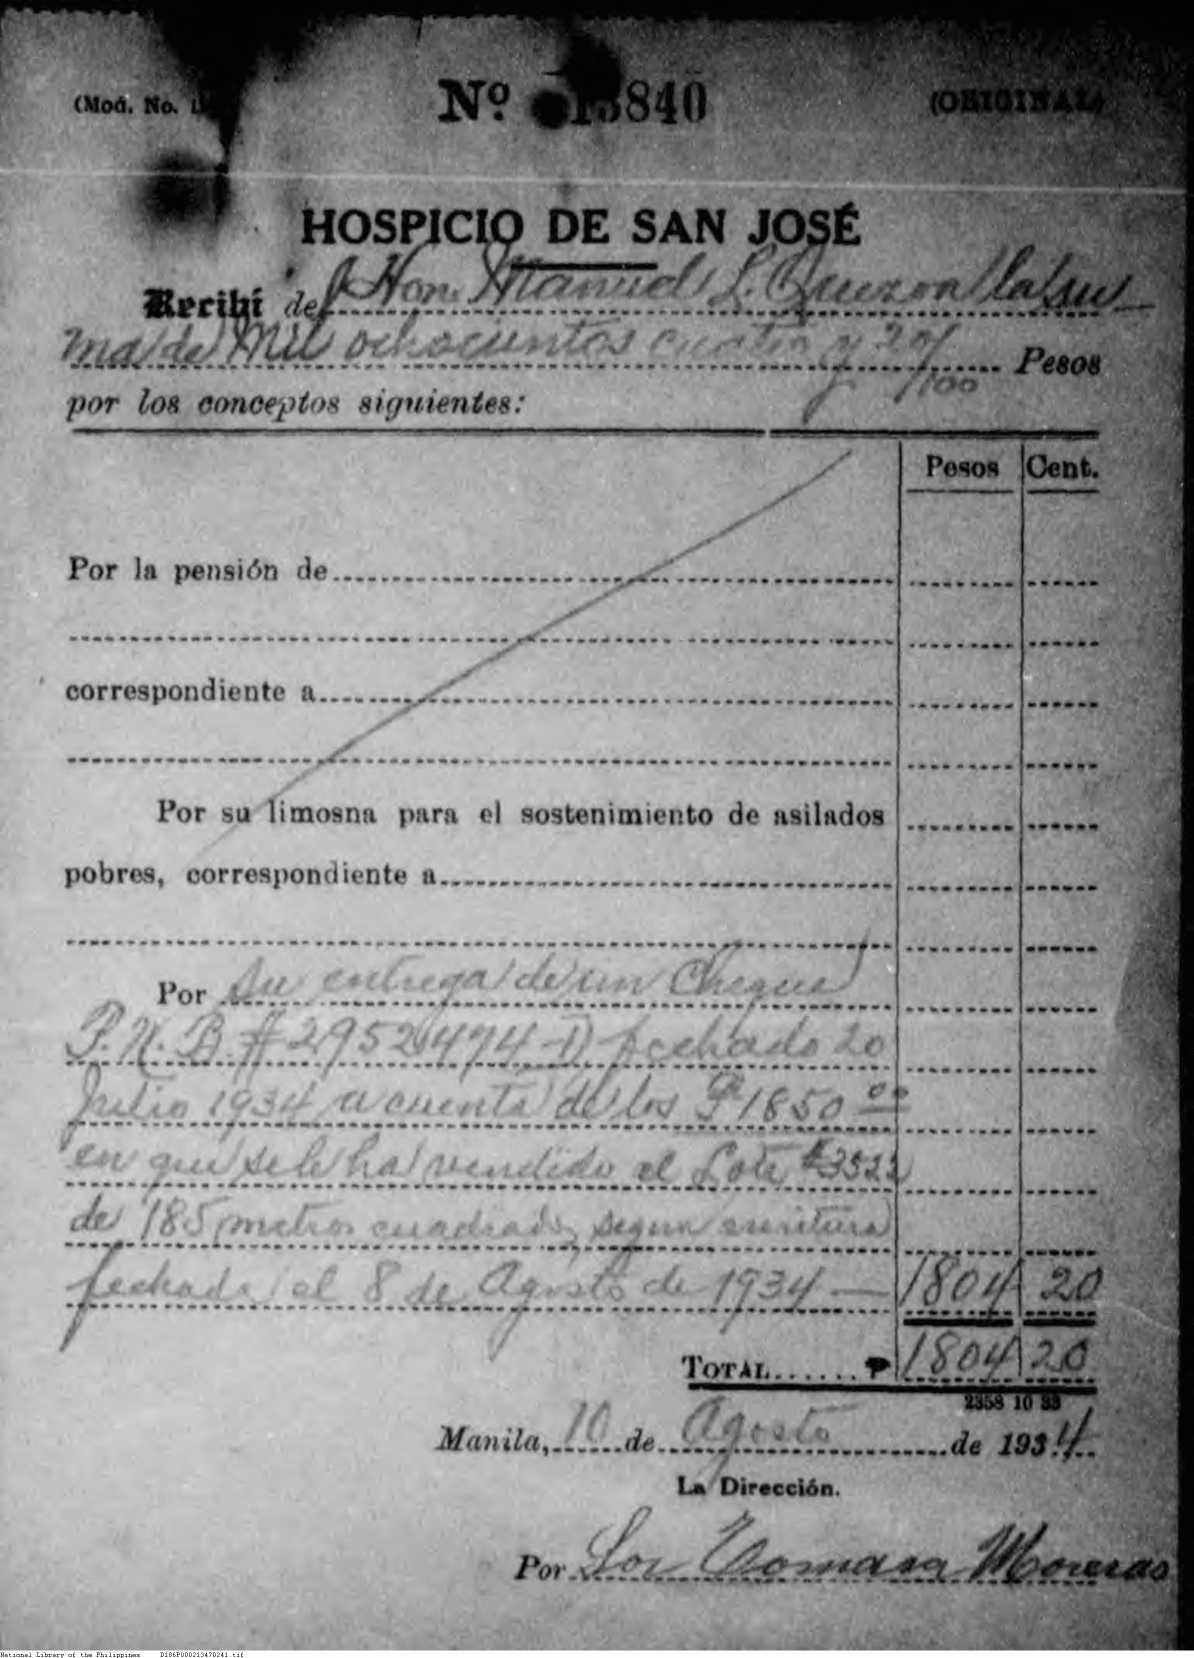 (Mod. No. 1
Nº 13840
(ORIGINAL)
HOSPICIO DE SAN JOSÉ
Recibí del Hon. Manuel L. Quezon la su
ma de Mil ochocientos cuatro y 20/100 Pesos
por los conceptos siguientes:
Pesos Cent.
Por la pensión de
correspondiente a
Por su limosna para el sostenimiento de asilados
pobres, correspondiente a
Por su entrega de un Cheque
P. N. B. # 2952474-D fechado 20
Julio 1934 a cuenta de los ₱1850 00
en que se le ha vendido el Lote #3522
de 185 metros cuadrados, segun escritura
fechada el 8 de Agosto de 1934 — 1804 20
TOTAL ...... ₱ 1804 20
2358 10 33
Manila, 10 de Agosto de 1934
La Dirección.
Por Sor Tomasa
National Library of the Philippines D186P000213470241.tif